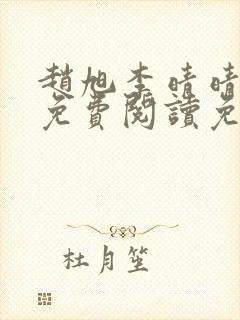 趙旭李晴晴
免費閱讀免
杜月笙